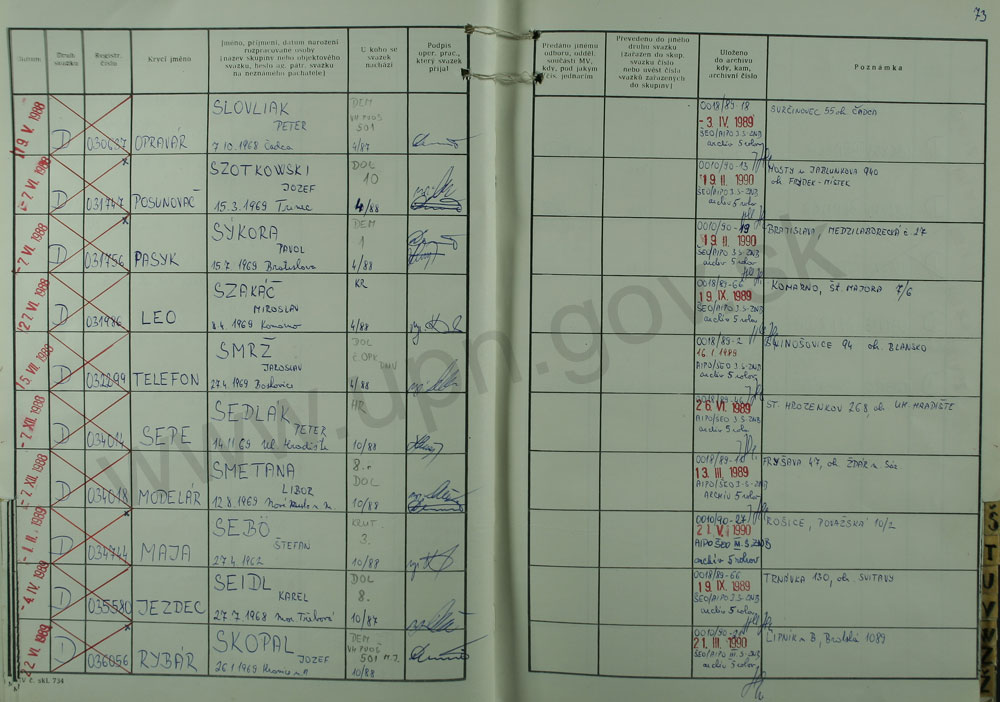 73
Datum
Druh svazku
Registr. číslo
Krycí jméno
Jméno, příjmení, datum narození
rozpracované osoby
(název skupiny nebo objektového
svazku, heslo ag. pátr. svazku
na neznámého pachatele)
U koho se
svazek
nachází
Podpis
oper. prac.,
který svazek
přijal
Předáno jinému
odboru, odděl.
součásti MV,
kdy, pod jakým
čís. jednacím
Převedeno do jiného
druhu svazku
(zařazen do skup.
svazku číslo
nebo uvést čísla
svazků zařazených
do skupiny)
Uloženo
do archivu
kdy, kam,
archivní číslo
Poznámka
19 V. 1988 D 030637 OPRAVÁR
SLOVLIAK
PETER
7.10.1968 Čadca
DEM
501
4/87
0018/89-18
- 3. IV. 1989
ŠEO/AIPO 3.S-ZNB
archiv 5 rokov
SVRČINOVEC 55 ok. ČADCA
- 7. VI. 1988 D 031747 POSUNOVAČ
SZOTKOWSKI
JOZEF
15.3.1969 Trinec
DOL
10
4/88
0010/90-13
19. II. 1990
ŠEO/AIPO 3.S-ZNB
archiv 5 rokov
MOSTY u JABLUNKOVA 940
ok. FRÝDEK-MÍSTEK
- 7. VI. 1988 D 031756 PASYK
SÝKORA
PAVOL
15.7.1969 Bratislava
DEM
1
4/88
0010/90-19
19. II. 1990
ŠEO/AIPO 3.S-ZNB
archiv 5 rokov
BRATISLAVA MEDZILABORECKÁ č. 27
27. VI. 1988 D 031986 LEO
SZAKÁČ
MIROSLAV
1969 Komárno
KR
4/88
0018/89-66
19. IX. 1989
ŠEO/AIPO 3.S-ZNB
archiv 5 rokov
KOMARNO, ŠT. MAJORA 7/6
15. VII 1988 D 032299 TELEFON
SMRŽ
JAROSLAV
27.4.1969 Boskovice
DOL
4/88
0018/89-2
16.1.1989
AIPO/ŠEO 3.S-ZNB
archiv 5 rokov
94 ok. BLANSKO
- 7. XII. 1988 034014 SEPE
SEDLÁK
PETER
14.11.69 Uh. Hradiště
HR
10/88
26. VI. 1989
ŠEO/AIPO 3.S-ZNB
archiv 5 rok
ST. HROZENKOV 268 ok. UH. HRADIŠTE
- 7. XII. 1988 D 034018 MODELÁR
SMETANA
LIBOR
12.8.1969
8.
DOL
10/88
0018/89-18
13. III. 1989
AIPO/ŠEO 3-S-ZNB
ARCHIV 5 rok
FRYŠAVA 47, ok. ŽĎÁR n. Sáz.
- 1. II. 1989 D 034744 MAJA
SEBÖ
ŠTEFAN
27.4.1962
KRUT.
3.
10/88
0010/90-27
21. V. 1990
AIPO/ŠEO III. S ZNB
archiv 5 rokov
ROŠICE, POVAŽSKÁ 10/2
- 4. IV. 1989 D 035580 JEZDEC
SEIDL
KAREL
27.7.1968 Mor. Třebová
DOL
8.
10/87
0018/89-66
19. IX. 1989
ŠEO/AIPO 3.S-ZNB
archiv 5 rokov
TRNÁVKA 130, ok. SVITAVY
22. VI. 1989 036056 RYBÁR
SKOPAL
JOZEF
26.1.1969
DEM
501
10/88
0010/90-21
21. III. 1990
ŠEO/AIPO III. S ZNB
archiv 5 rokov
LIPNÍK n. B, Bratská 1089
IV č. skl. 734
Š
T
U
V
W
Z
Ž
www.upn.gov.sk